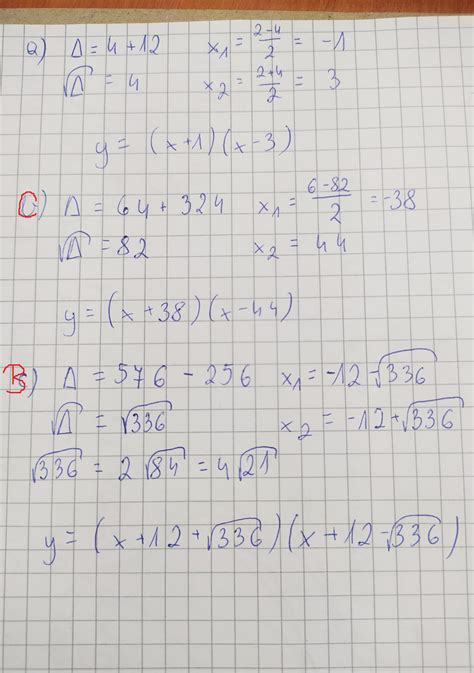 a) Δ = 4 + 12 x₁ = (2-4)/2 = -1
√Δ = 4 x₂ = (2+4)/2 = 3
y = (x+1)(x-3)
C) Δ = 64 + 324 x₁ = (6-82)/2 = -38
√Δ = 82 x₂ = 44
y = (x+38)(x-44)
B) Δ = 576 - 256 x₁ = -12 - √336
√Δ = √336 x₂ = -12 + √336
√336 = 2√84 = 4√21
y = (x+12+√336)(x+12-√336)